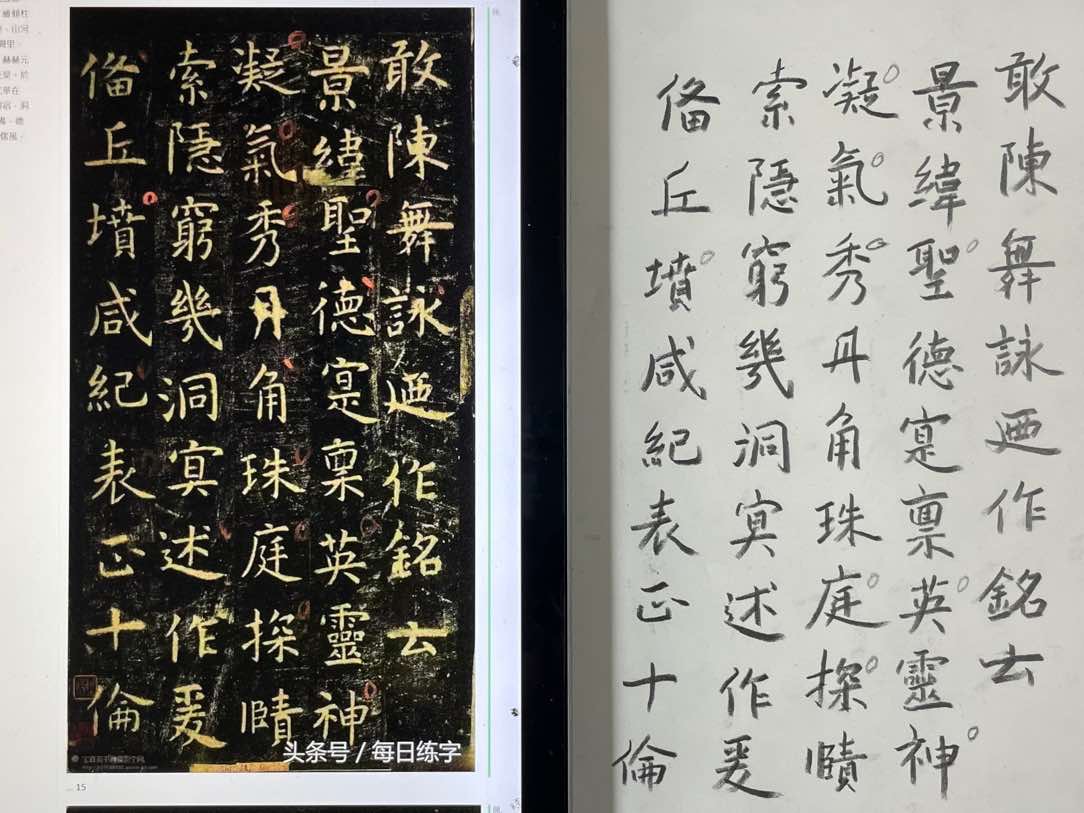 敢陳舞詠迺作銘云
景緯聖德寔稟英靈神
凝氣秀月角珠庭探賾
索隱窮幾洞冥述作爰
俻丘墳咸紀表正十倫
头条号 / 每日练字
15
敢陳舞詠迺作銘云
景緯聖德寔稟英靈神
凝氣秀月角珠庭探賾
索隱窮幾洞冥述作爰
俻丘墳咸紀表正十倫